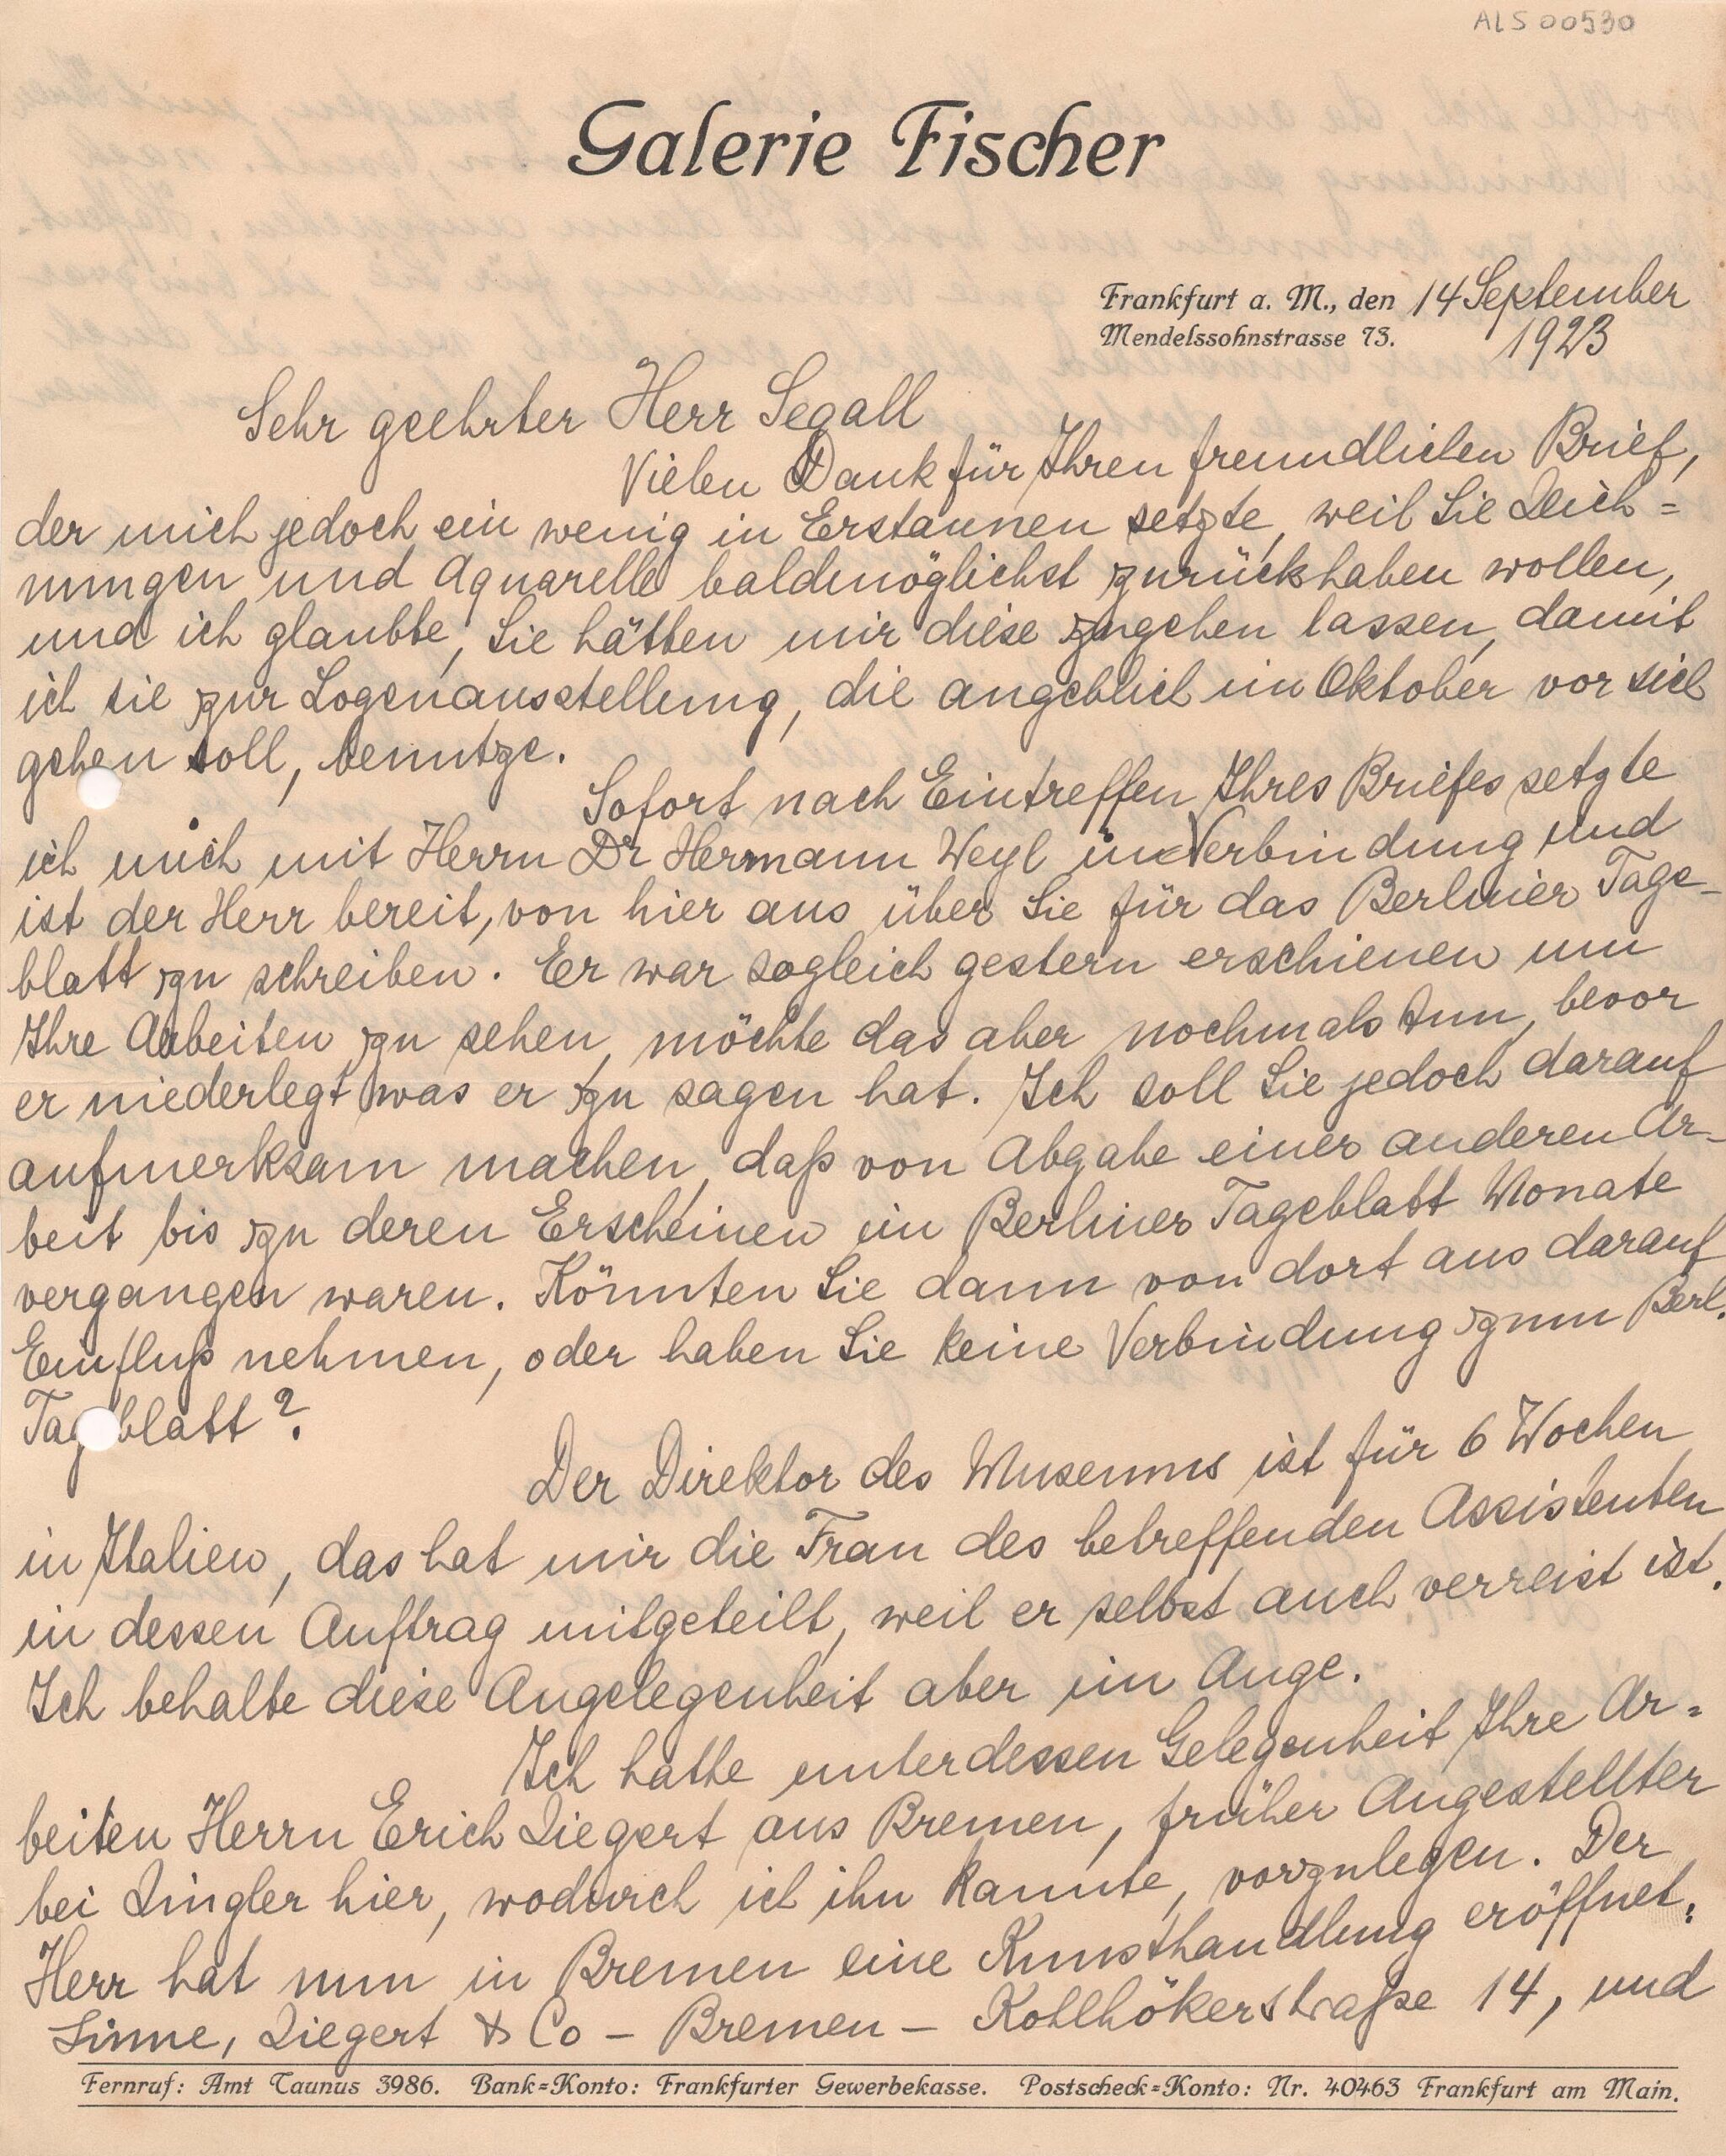 ALS 00530
Galerie Fischer
Frankfurt a. M., den 14 September
Mendelssohnstrasse 73. 1923
Sehr geehrter Herr Segall
Vielen Dank für Ihren freundlichen Brief,
der mich jedoch ein wenig in Erstaunen setzte, weil Sie Zeich=
nungen und Aquarelle baldmöglichst zurückhaben wollen,
und ich glaubte, Sie hätten mir diese zugehen lassen, damit
ich sie zur Logenausstellung, die angeblich im Oktober vor sich
gehen soll, benutze.
Sofort nach Eintreffen Ihres Briefes setzte
ich mich mit Herrn Dr Hermann Weyl in Verbindung und
ist der Herr bereit, von hier aus über Sie für das Berliner Tage-
blatt zu schreiben. Er war sogleich gestern erschienen um
Ihre Arbeiten zu sehen, möchte das aber nochmals tun, bevor
er niederlegt was er zu sagen hat. Ich soll Sie jedoch darauf
aufmerksam machen, daß von Abgabe einer anderen Ar-
beit bis zu deren Erscheinen im Berliner Tageblatt Monate
vergangen waren. Könnten Sie dann von dort aus darauf
Einfluß nehmen, oder haben Sie keine Verbindung zum Berl.
Tageblatt?
Der Direktor des Museums ist für 6 Wochen
in Italien, das hat mir die Frau des betreffenden Assistenten
in dessen Auftrag mitgeteilt, weil er selbst auch verreist ist.
Ich behalte diese Angelegenheit aber im Auge.
Ich hatte unterdessen Gelegenheit Ihre Ar=
beiten Herrn Erich Ziegert aus Bremen, früher Angestellter
bei Zingler hier, wodurch ich ihn kannte, vorzulegen. Der
Herr hat nun in Bremen eine Kunsthandlung eröffnet:
Sinne, Ziegert & Co – Bremen – Kohlhökerstraße 14, und
Fernruf: Amt Taunus 3986. Bank=Konto: Frankfurter Gewerbekasse. Postscheck=Konto: Nr. 40463 Frankfurt am Main.